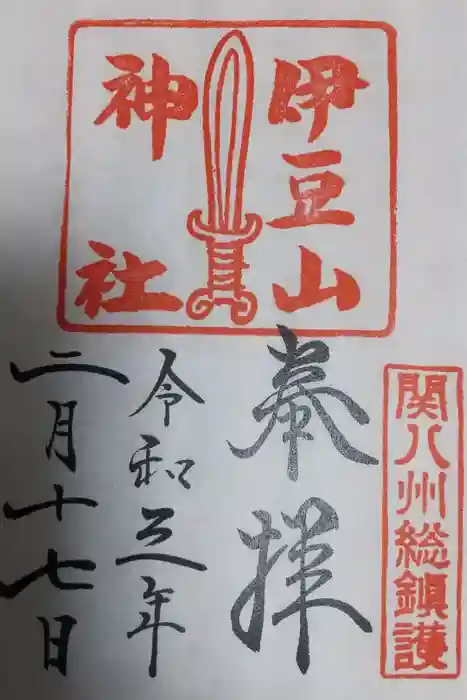 伊豆山
神社
関八州総鎮護
奉拝
令和五年
二月十七日